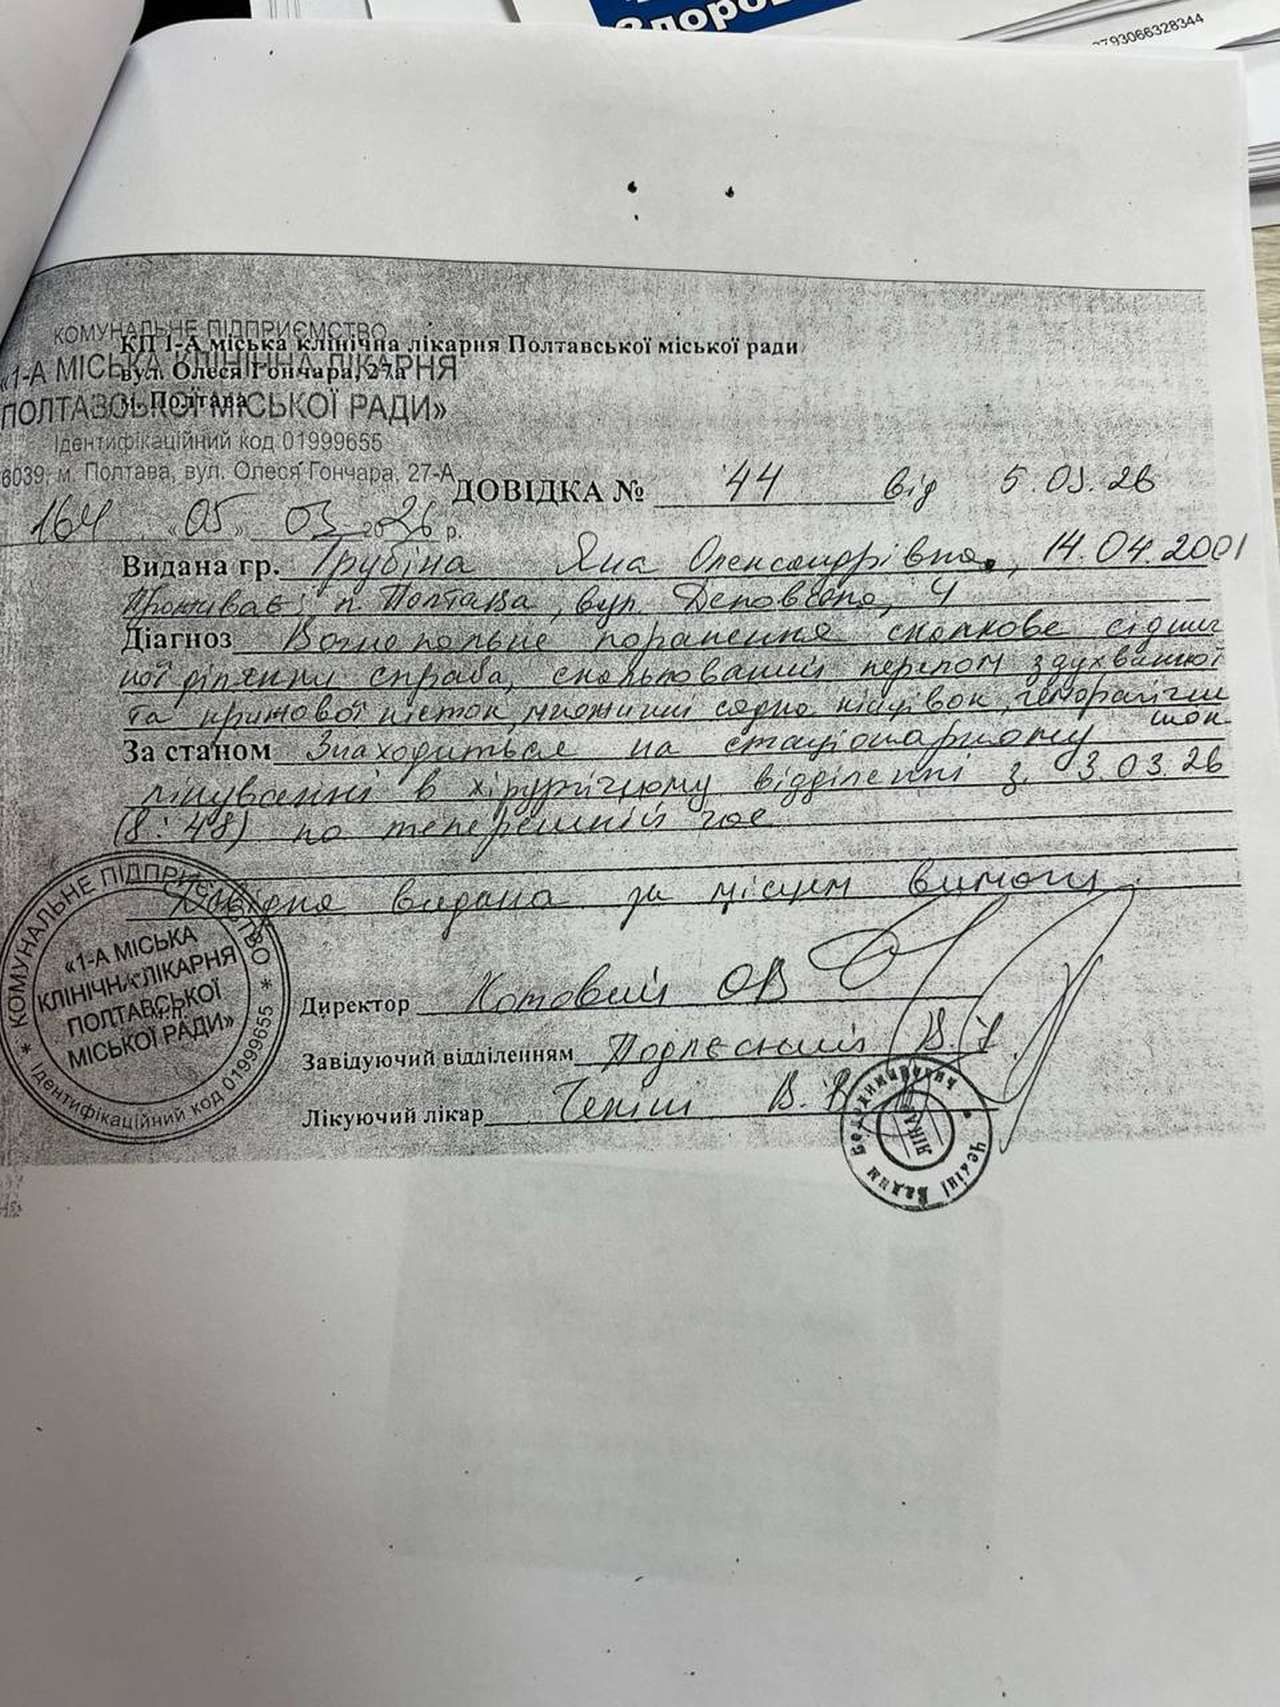 Здоров
2793066328344
КОМУНАЛЬНЕ ПІДПРИЄМСТВО
КП 1-А міська клінічна лікарня Полтавської міської ради
«1-А МІСЬКА КЛІНІЧНА ЛІКАРНЯ
вул. Олеся Гончара, 27а
ПОЛТАВСЬКОЇ МІСЬКОЇ РАДИ»
м. Полтава
Ідентифікаційний код 01999655
6039, м. Полтава, вул. Олеся Гончара, 27-А
ДОВІДКА № 44 від 5.03.26
164 «05» 03 2026 р.
Видана гр. Трубіна Яна Олександрівна, 14.04.2001
Проживає: м. Полтава, вул. Деповська, 4
Діагноз Вогнепальне поранення сколкове сіднич
ної ділянки справа, скалковий перелом здухвинної
та крижової кісток, множинні садна кінцівок, геморагічний
шок
За станом Знаходиться на стаціонарному
лікуванні в хірургічному відділенні з 3.03.26
(8:48) по теперешній час
Довідка видана за місцем вимоги
Директор Котовий ОВ
Завідуючий відділенням Подлєсний В.І.
Лікуючий лікар Челіш В.В
* КОМУНАЛЬНЕ ПІДПРИЄМСТВО *
«1-А МІСЬКА
КЛІНІЧНА ЛІКАРНЯ
ПОЛТАВСЬКОЇ
М.П.
МІСЬКОЇ РАДИ»
Ідентифікаційний код 01999655
Вадим